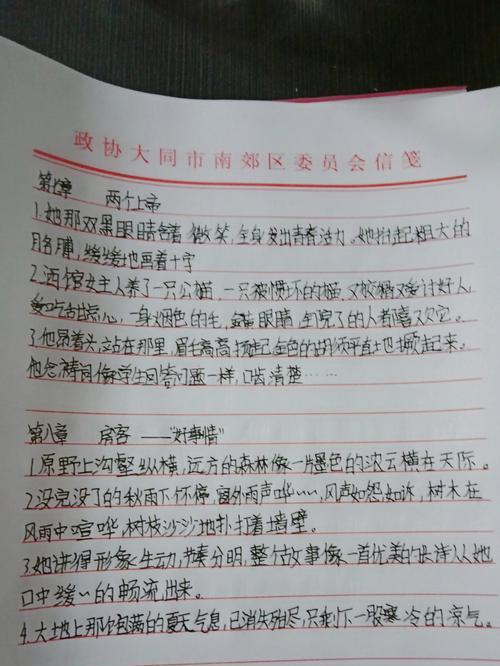 政协大同市南郊区委员会信笺
第七章 两个上帝
1.她那双黑眼睛含着微笑,全身发出青春活力。她抬起粗大的
胳膊,缓缓地画着十字
2.酒馆女主人养了一只公猫,一只被惯坏的猫,又狡猾又会讨好人
爱吃甜点心,一身烟色的毛,金眼睛,全院子的人都喜欢它。
3.他昂着头,站在那里,眉毛高高扬起,金色的胡须平直上也撅起来。
他念祷词像学生回答问题一样,口齿清楚……
第八章 房客——“好事情”
1.原野上沟壑纵横,远方的森林像一片墨色的浓云横在天际。
2.没完没了的秋雨下个不停,窗外雨声哗~~,风声如怨如诉,树木在
风雨中喧哗,树枝沙沙地扑打着墙壁。
3.她讲得形象生动,节奏分明,整个故事像一首优美的长诗从她
口中缓~的畅流出来。
4.大地上那饱满的夏天气息,已消失殆尽,只剩下一股寒冷的凉气。